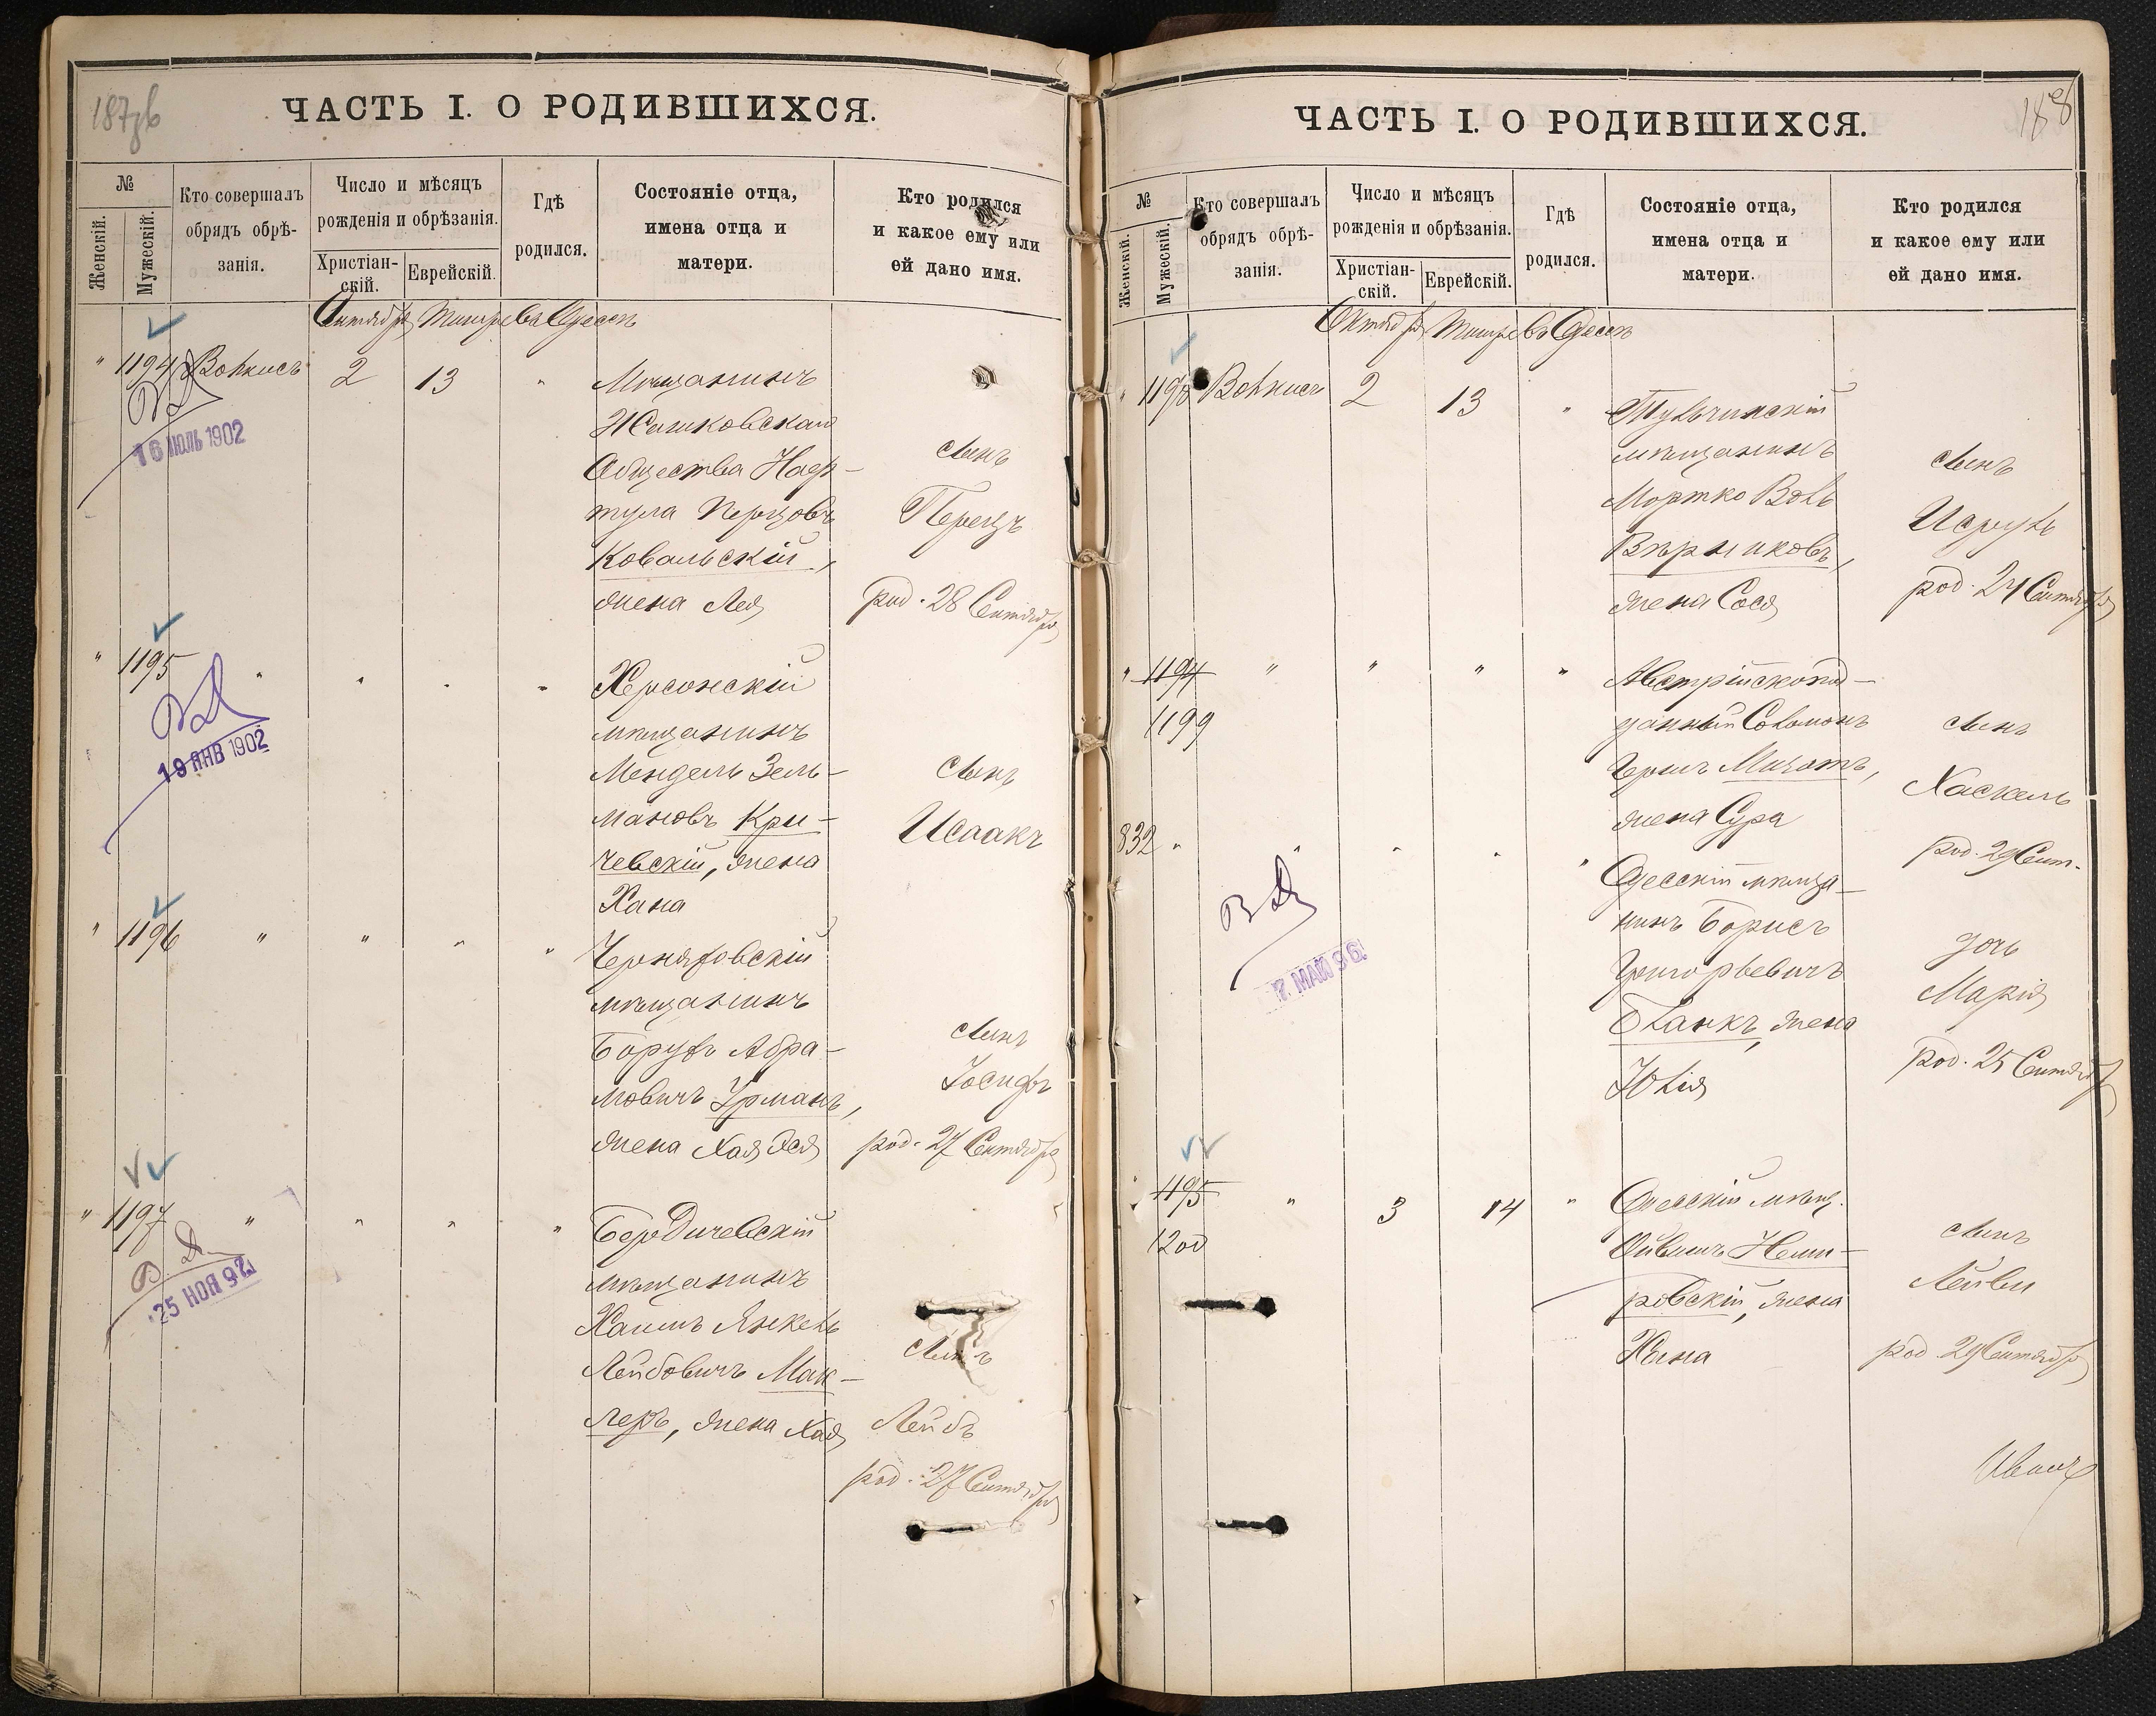 187об
ЧАСТЬ I. О РОДИВШИХСЯ.
№
Женскій.
Мужескій.
Кто совершалъ
обрядъ обрѣ-
занія.
Число и мѣсяцъ
рожденія и обрѣзанія.
Христіан-
скій.
Еврейскій.
Гдѣ
родился.
Состояніе отца,
имена отца и
матери.
Кто родился
и какое ему или
ей дано имя.
Октября Тишре Въ Одессѣ
" 1194 Волкисъ 2 13 "
16 ІЮЛЬ 1902
Мѣщанинъ
Жашковскаго
Общества Наф-
тула Перцовъ
Ковальскій,
жена Лея
сынъ
Перецъ
род. 28 Сентября
" 1195 " " " "
19 ЯНВ 1902
Херсонскій
мѣщанинъ
Мендель Зель-
мановъ Кри-
чевскій, жена
Хана
сынъ
Исаакъ
" 1196 " " " "
Черняховскій
мѣщанинъ
Борухъ Абра-
мовичъ Урманъ,
жена Хая Эся
сынъ
Іосифъ
род. 27 Сентября
" 1197 " " " "
В. Д.
25 НОЯ 92
Бердичевскій
мѣщанинъ
Хаимъ Янкель
Лейбовичъ Мак-
леръ, жена Хая
сынъ
Лейбъ
род. 27 Сентября
188
ЧАСТЬ I. О РОДИВШИХСЯ.
№
Женскій.
Мужескій.
Кто совершалъ
обрядъ обрѣ-
занія.
Число и мѣсяцъ
рожденія и обрѣзанія.
Христіан-
скій.
Еврейскій.
Гдѣ
родился.
Состояніе отца,
имена отца и
матери.
Кто родился
и какое ему или
ей дано имя.
Октября Тишре Въ Одессѣ
" 1198 Волкисъ 2 13 "
Тульчинскій
мѣщанинъ
Мортко Вольф
Вѣрниковъ,
жена Сося
сынъ
Исруль
род. 24 Сентября
" 1194 " " " "
1199
Австрійскопод-
данный Соломонъ
Гершъ
жена Сура
сынъ
Хаскель
род. 29 Сент.
832 " " " " "
7. МАЙ 96
Одесскій мѣща-
нинъ Борисъ
Григорьевичъ
Бланкъ, жена
Юлія
дочь
Марія
род. 25 Сентября
" 1195 " 3 14 "
1200
Одесскій мѣщ.
Ойвишъ Неми-
ровскій, жена
Хана
сынъ
Лейви
род. 29 Сентября